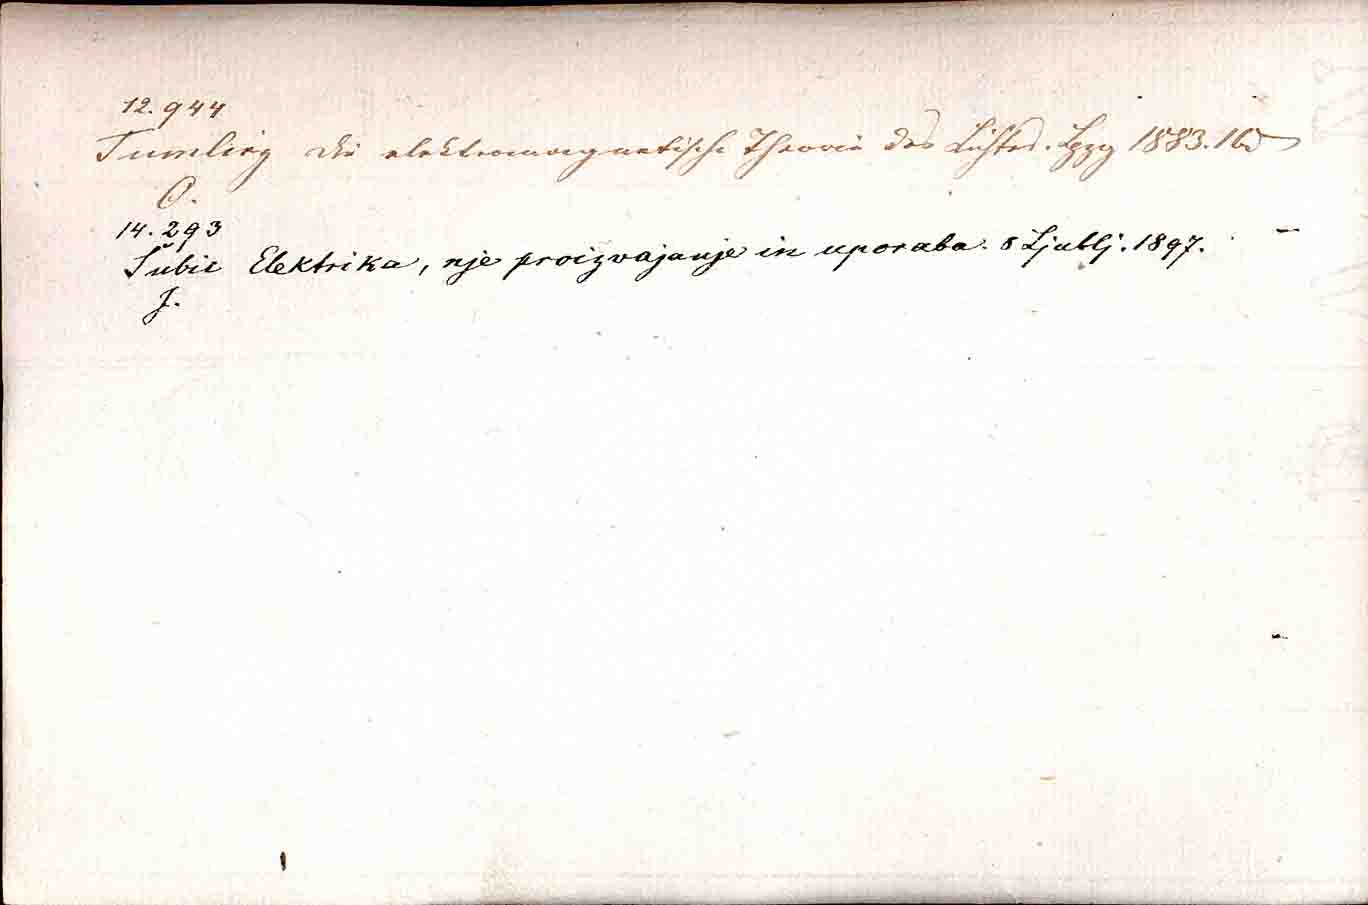 12.944
Tumlirz die elektromagnetische Theorie des Lichtes. Lpzg 1883. 16°
O.
14.293
Šubic Elektrika, nje proizvajanje in uporaba. 8 Ljublj. 1897.
J.